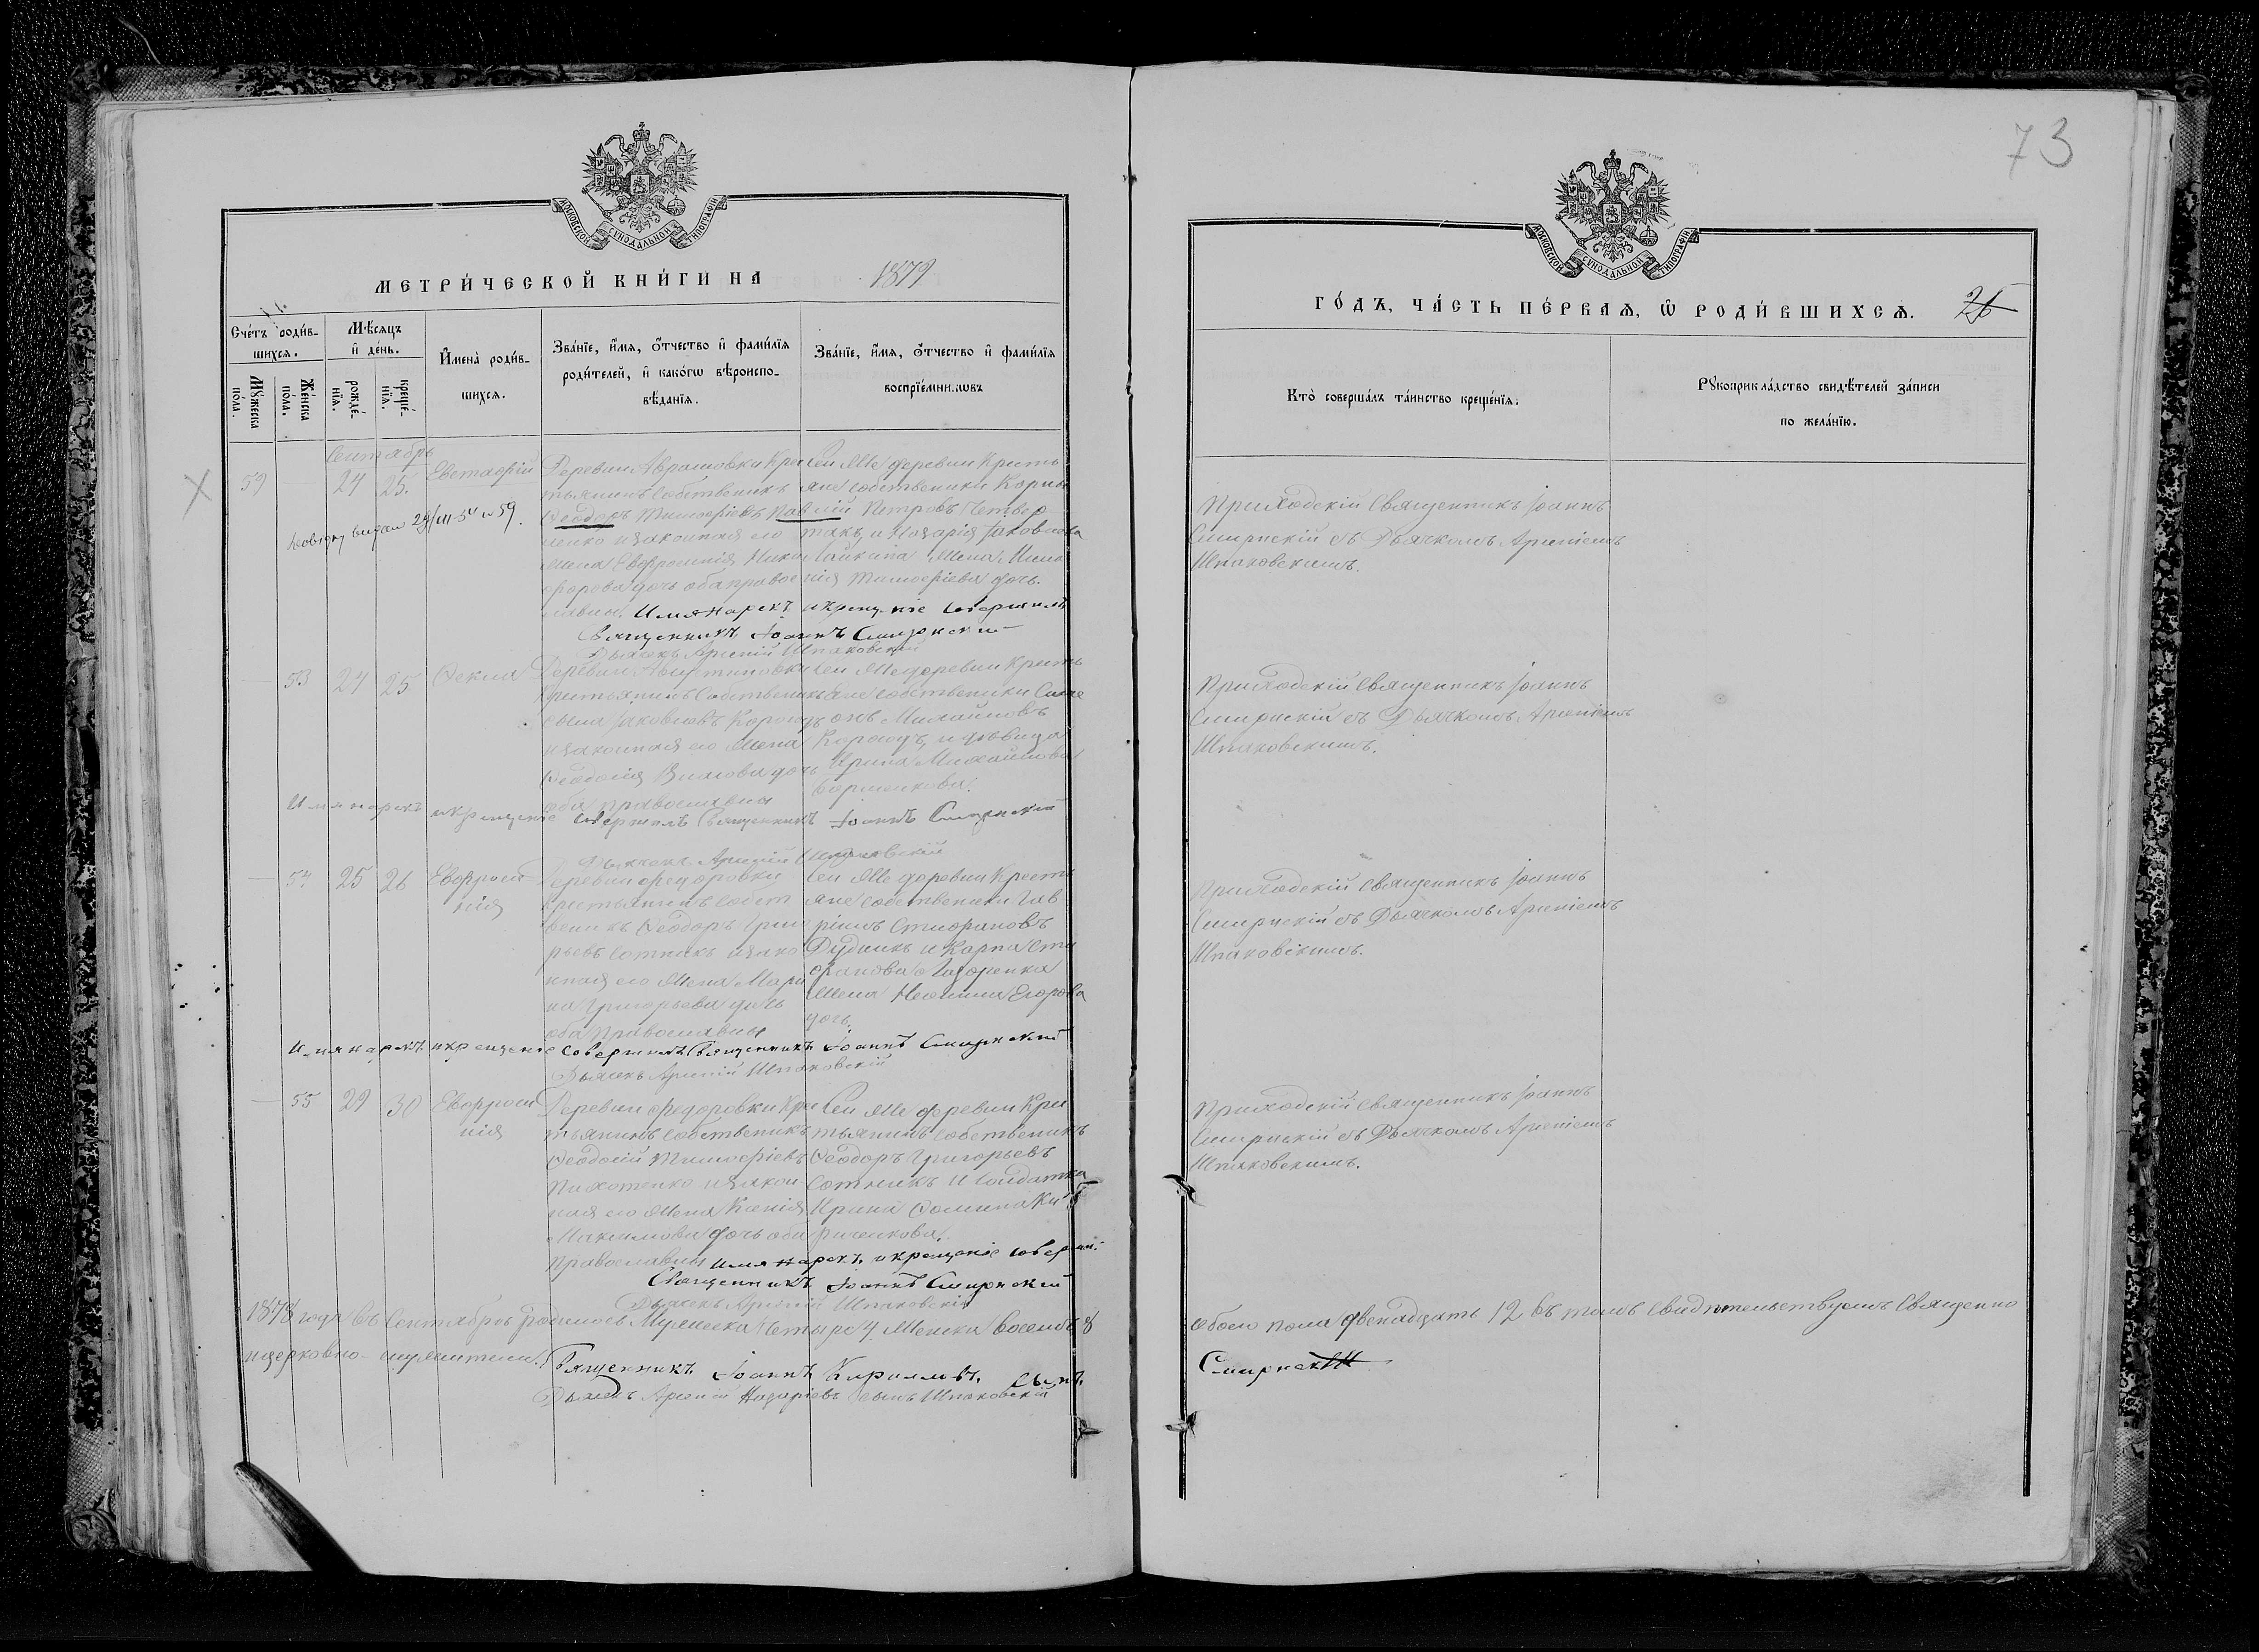 73
МОСКОВСКОЙ СУНОДАЛЬНОЙ ТИПОГРАФІИ
МЕТРИ́ЧЕСКОЙ КНИ́ГИ НА 1879
Сче́тъ роди́в-
шихсѧ.
Мѣ́сѧцъ
и҆ де́нь.
И҆мена̀ роди́в-
шихсѧ.
Зва́нїе, и҆́мѧ, ѻ҆́тчество и҆ фами́лїѧ
роди́телей, и҆ како́гѡ вѣроиспо-
вѣ́данїѧ.
Зва́нїе, и҆́мѧ, ѻ҆́тчество и҆ фами́лїѧ
воспрїе́мникѡвъ
Мꙋ́жеска
по́ла.
Же́нска
по́ла.
рожде́-
нїѧ.
креще́-
нїѧ.
Сентябрь
59 24 25. Евстафій
Деревни Аврамовки Крес
тьянинъ собственикъ
Ѳеодоръ Тимофіевъ Пав
ненко изаконная его
жена Евфросинія Ники
форова дочь оба правос
лавны.
Сей Же деревни Кресть
яне собственики Корни
лій Петровъ Четвер
такъ, и Назарія Іаковлева
жена
нія Тимофіева дочь.
выдан 29/III-54 и 59.
Имя нарекъ и крещеніе совершилъ
Священникъ Іоаннъ Смирнскій
Дьячекъ Арсеній Шпаковскій
53 24 25 Ѳекла
Деревни
Крестьянинъ Собственикъ
Іаковлевъ Короидъ
изаконная его жена
Ѳеодосія дочь
оба православны
Сей Же деревни Кресть
яне собственики Симе
онъ Михайловъ
Короидъ, и дѣвица
Ирина Михайлова
Имя нарекъ и крещеніе совершилъ Священникъ Іоаннъ Смирнскій
Дьячекъ Арсеній Шпаковскій
54 25 26 Евфроси
нія
Деревни Федоровки
Крестьянинъ собст
веникъ Ѳеодоръ Григо
рьевъ Сотникъ изако
нная его жена Мари
на Григорьева дочь
оба православны
Сей Же деревни Кресть
яне собственики Гав
ріилъ Стифановъ
Дудникъ и Карпа Сти
фанова Лазоренка
жена Неонила Егорова
дочь.
Имя нарекъ и крещеніе совершилъ Священникъ Іоаннъ Смирнскій
Дьячекъ Арсеній Шпаковскій
55 29 30 Евфроси
нія
Деревни Федоровки Кре
тьянинъ собственикъ
Ѳеодосій Тимофіевъ
Пихотенко изакон
ная его жена Ксенія
Максимова дочь оба
православны
Сей Же деревни Крес
тьянинъ собственикъ
Ѳеодоръ Григорьевъ
Сотникъ и солдатка
Ирина Фомина Ки
риченкова.
имя нарекъ и крещеніе соверши.
Священникъ Іоаннъ Смирнскій
Дьячекъ Арсеній Шпаковскій
1878 года въ Сентябрѣ родилось Мужеска четыре 4. Женска восемь 8
и церковно-служители.
Священникъ Іоаннъ Кириловъ сынъ
Дьячекъ Арсеній Назаріевъ сынъ Шпаковскій
МОСКОВСКОЙ СУНОДАЛЬНОЙ ТИПОГРАФІИ
ГО́ДЪ, ЧА́СТЬ ПЕ́РВАѦ, Ѡ҆ РОДИ́ВШИХСѦ.
Кто̀ соверша́лъ та́инство креще́нїѧ.
Рꙋкоприкла́дство свидѣ́телей за́писи
по жела́нїю.
Приходскій Священникъ Іоаннъ
Смирнскій съ Дьячкомъ Арсеніемъ
Шпаковскимъ.
Приходскій Священникъ Іоаннъ
Смирнскій съ Дьячкомъ Арсеніемъ
Шпаковскимъ.
Приходскій Священникъ Іоаннъ
Смирнскій съ Дьячкомъ Арсеніемъ
Шпаковскимъ.
Приходскій Священникъ Іоаннъ
Смирнскій съ Дьячкомъ Арсеніемъ
Шпаковскимъ.
обоего пола двенадцать 12 въ томъ свидѣтельствуемъ Священно
Смирнскій